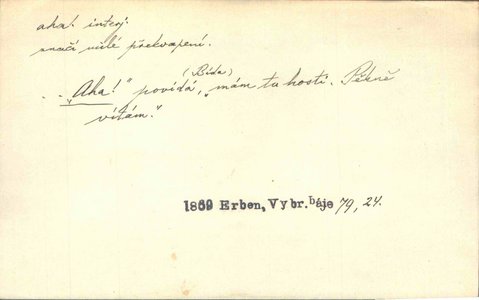 aha! interj.
značí milé překvapení.
(Bída)
. . "Aha!" povídá, "mám tu hosti. Pěkně
vítám."
1869 Erben, Vybr. báje 79, 24.